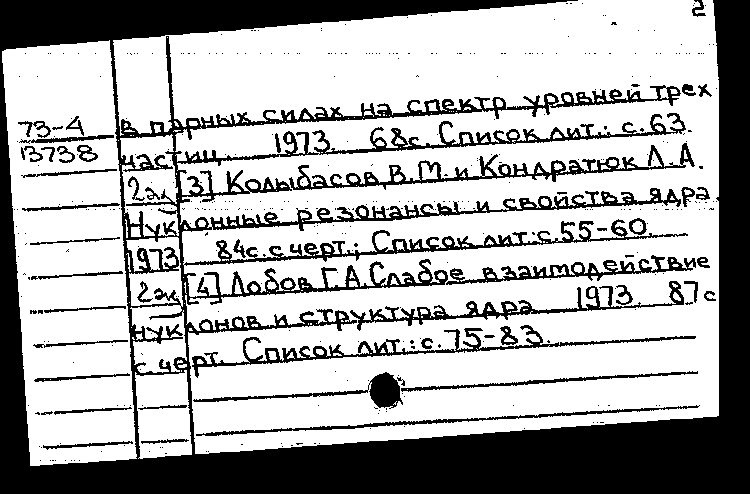 2
73-4 в парных силах на спектр уровней трех
13738 частиц. 1973. 68с. Список лит.: с.63.
2эк [3] Колыбасов В.М. и Кондратюк Л.А.
Нуклонные резонансы и свойства ядра.
1973 84с. с черт.; Список лит.:с.55-60.
2эк [4] Лобов Г.А. Слабое взаимодействие
нуклонов и структура ядра 1973. 87с
с черт. Список лит.:с.75-83.